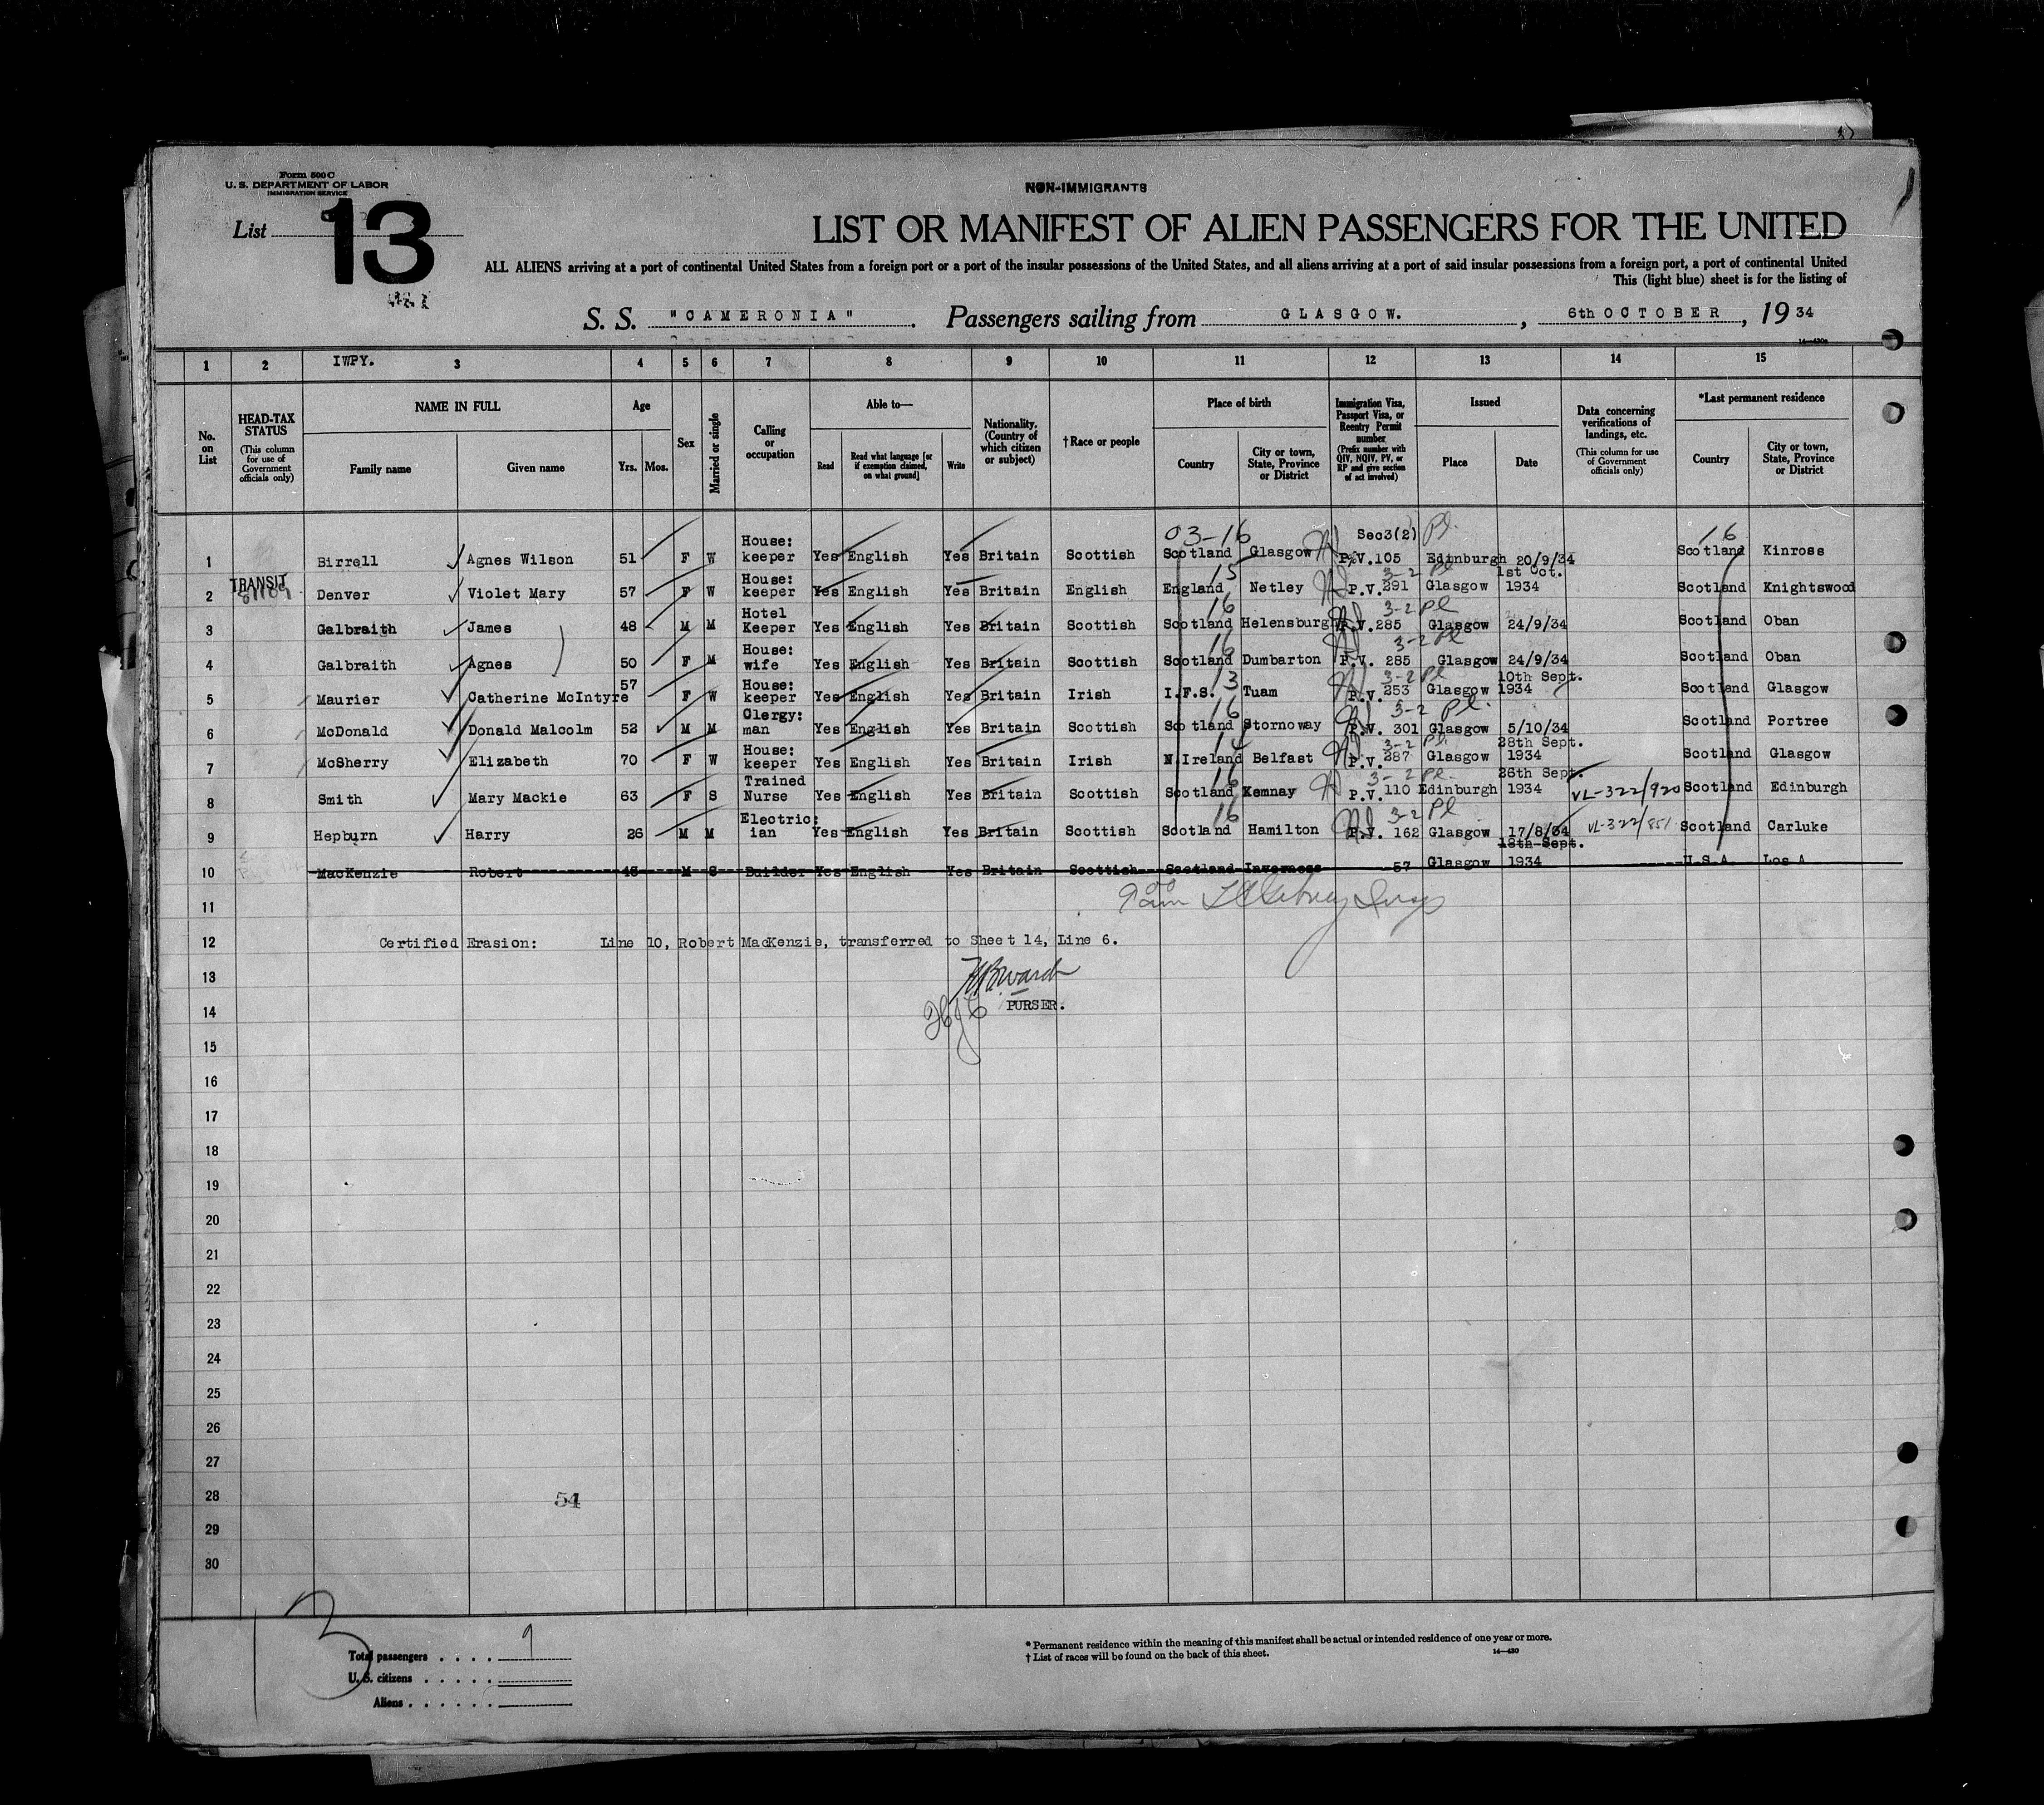 Form 500 C
U. S. DEPARTMENT OF LABOR
IMMIGRATION SERVICE
NON-IMMIGRANTS
List 13
LIST OR MANIFEST OF ALIEN PASSENGERS FOR THE UNITED
ALL ALIENS arriving at a port of continental United States from a foreign port or a port of the insular possessions of the United States, and all aliens arriving at a port of said insular possessions from a foreign port, a port of continental United
This (light blue) sheet is for the listing of
S. S. "CAMERONIA". Passengers sailing from GLASGOW. , 6th OCTOBER , 19 34
1 2 IWPY. 3 4 5 6 7 8 9 10 11 12 13 14 15
No. on List
HEAD-TAX STATUS (This column for use of Government officials only)
NAME IN FULL
Family name Given name
Age
Yrs. Mos.
Sex
Married or single
Calling or occupation
Able to—
Read Read what language [or if exemption claimed, on what ground] Write
Nationality. (Country of which citizen or subject)
†Race or people
Place of birth
Country City or town, State, Province or District
Immigration Visa, Passport Visa, or Reentry Permit number (Prefix number with QIV, NQIV, PV, or RP and give section of act involved)
Issued
Place Date
Data concerning verifications of landings, etc. (This column for use of Government officials only)
*Last permanent residence
Country City or town, State, Province or District
03-16 Sec3(2) Pl. 16
1 Birrell Agnes Wilson 51 F W House: keeper Yes English Yes Britain Scottish Scotland Glasgow P.V.105 Edinburgh 20/9/34 Scotland Kinross
15 3-2 Pl
2 TRANSIT Denver Violet Mary 57 F W House: keeper Yes English Yes Britain English England Netley P.V.291 Glasgow 1st Oct. 1934 Scotland Knightswood
16 3-2 Pl
3 Galbraith James 48 M M Hotel Keeper Yes English Yes Britain Scottish Scotland Helensburgh P.V.285 Glasgow 24/9/34 Scotland Oban
16 3-2 Pl
4 Galbraith Agnes 50 F M House: wife Yes English Yes Britain Scottish Scotland Dumbarton P.V. 285 Glasgow 24/9/34 Scotland Oban
13 3-2 Pl
5 Maurier Catherine McIntyre 57 F W House: keeper Yes English Yes Britain Irish I.F.S. Tuam P.V.253 Glasgow 10th Sept. 1934 Scotland Glasgow
16 3-2 Pl.
6 McDonald Donald Malcolm 52 M M Clergy: man Yes English Yes Britain Scottish Scotland Stornoway P.V. 301 Glasgow 5/10/34 Scotland Portree
14 3-2 Pl.
7 McSherry Elizabeth 70 F W House: keeper Yes English Yes Britain Irish N.Ireland Belfast P.V.287 Glasgow 28th Sept. 1934 Scotland Glasgow
16 3-2 Pl.
8 Smith Mary Mackie 63 F S Trained Nurse Yes English Yes Britain Scottish Scotland Kemnay P.V.110 Edinburgh 26th Sept. 1934 VL-322/920 Scotland Edinburgh
16 3-2 Pl
9 Hepburn Harry 26 M M Electric: ian Yes English Yes Britain Scottish Scotland Hamilton P.V. 162 Glasgow 17/8/34 VL-322/851 Scotland Carluke
10 MacKenzie Robert M S Builder Yes English Yes Britain Scottish Scotland Inverness 57 Glasgow 18th Sept. 1934 U.S.A. Los A
11
12 Certified Erasion: Line 10, Robert MacKenzie, transferred to Sheet 14, Line 6.
13
14 PURSER.
15
16
17
18
19
20
21
22
23
24
25
26
27
28 54
29
30
13
Total passengers . . . . 9
U. S. citizens . . . . .
Aliens . . . . . .
* Permanent residence within the meaning of this manifest shall be actual or intended residence of one year or more.
† List of races will be found on the back of this sheet.
14—430